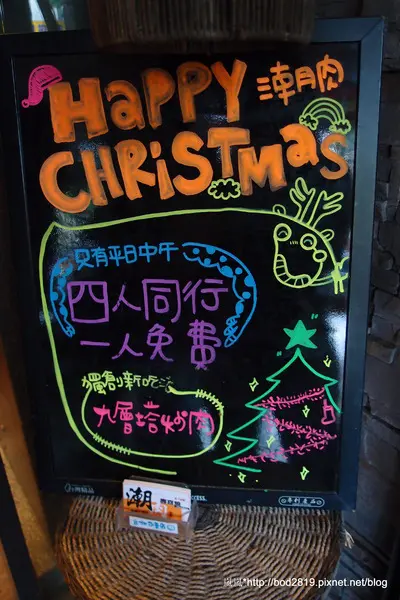 HAPPY 潮肉
CHRISTMAS
只有平日中午
四人同行
一人免費
獨創新吃法
九層塔炒肉
潮
"http://bod2819.pixnet.net/blog